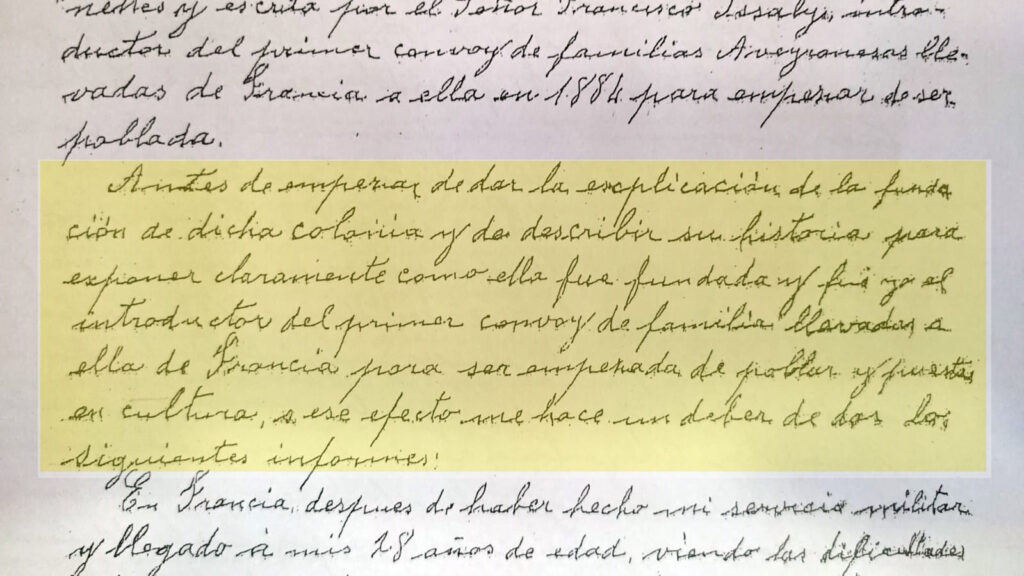 nenes y escrita por el Señor Francisco Issaly, intro-
ductor del primer convoy de familias Aveyronesas lle-
vadas de Francia a ella en 1884 para empezar de ser
poblada.
Antes de empezar de dar la esplicación de la funda
ción de dicha colonia y de describir su historia para
exponer claramente como ella fue fundada y fui yo el
introductor del primer convoy de familia llevadas a
ella de Francia para ser empezada de poblar y puestas
en cultura, a ese efecto me hace un deber de dar los
siguientes informes:
En Francia, despues de haber hecho mi servicio militar
y llegado à mis 28 años de edad, viendo las dificultades